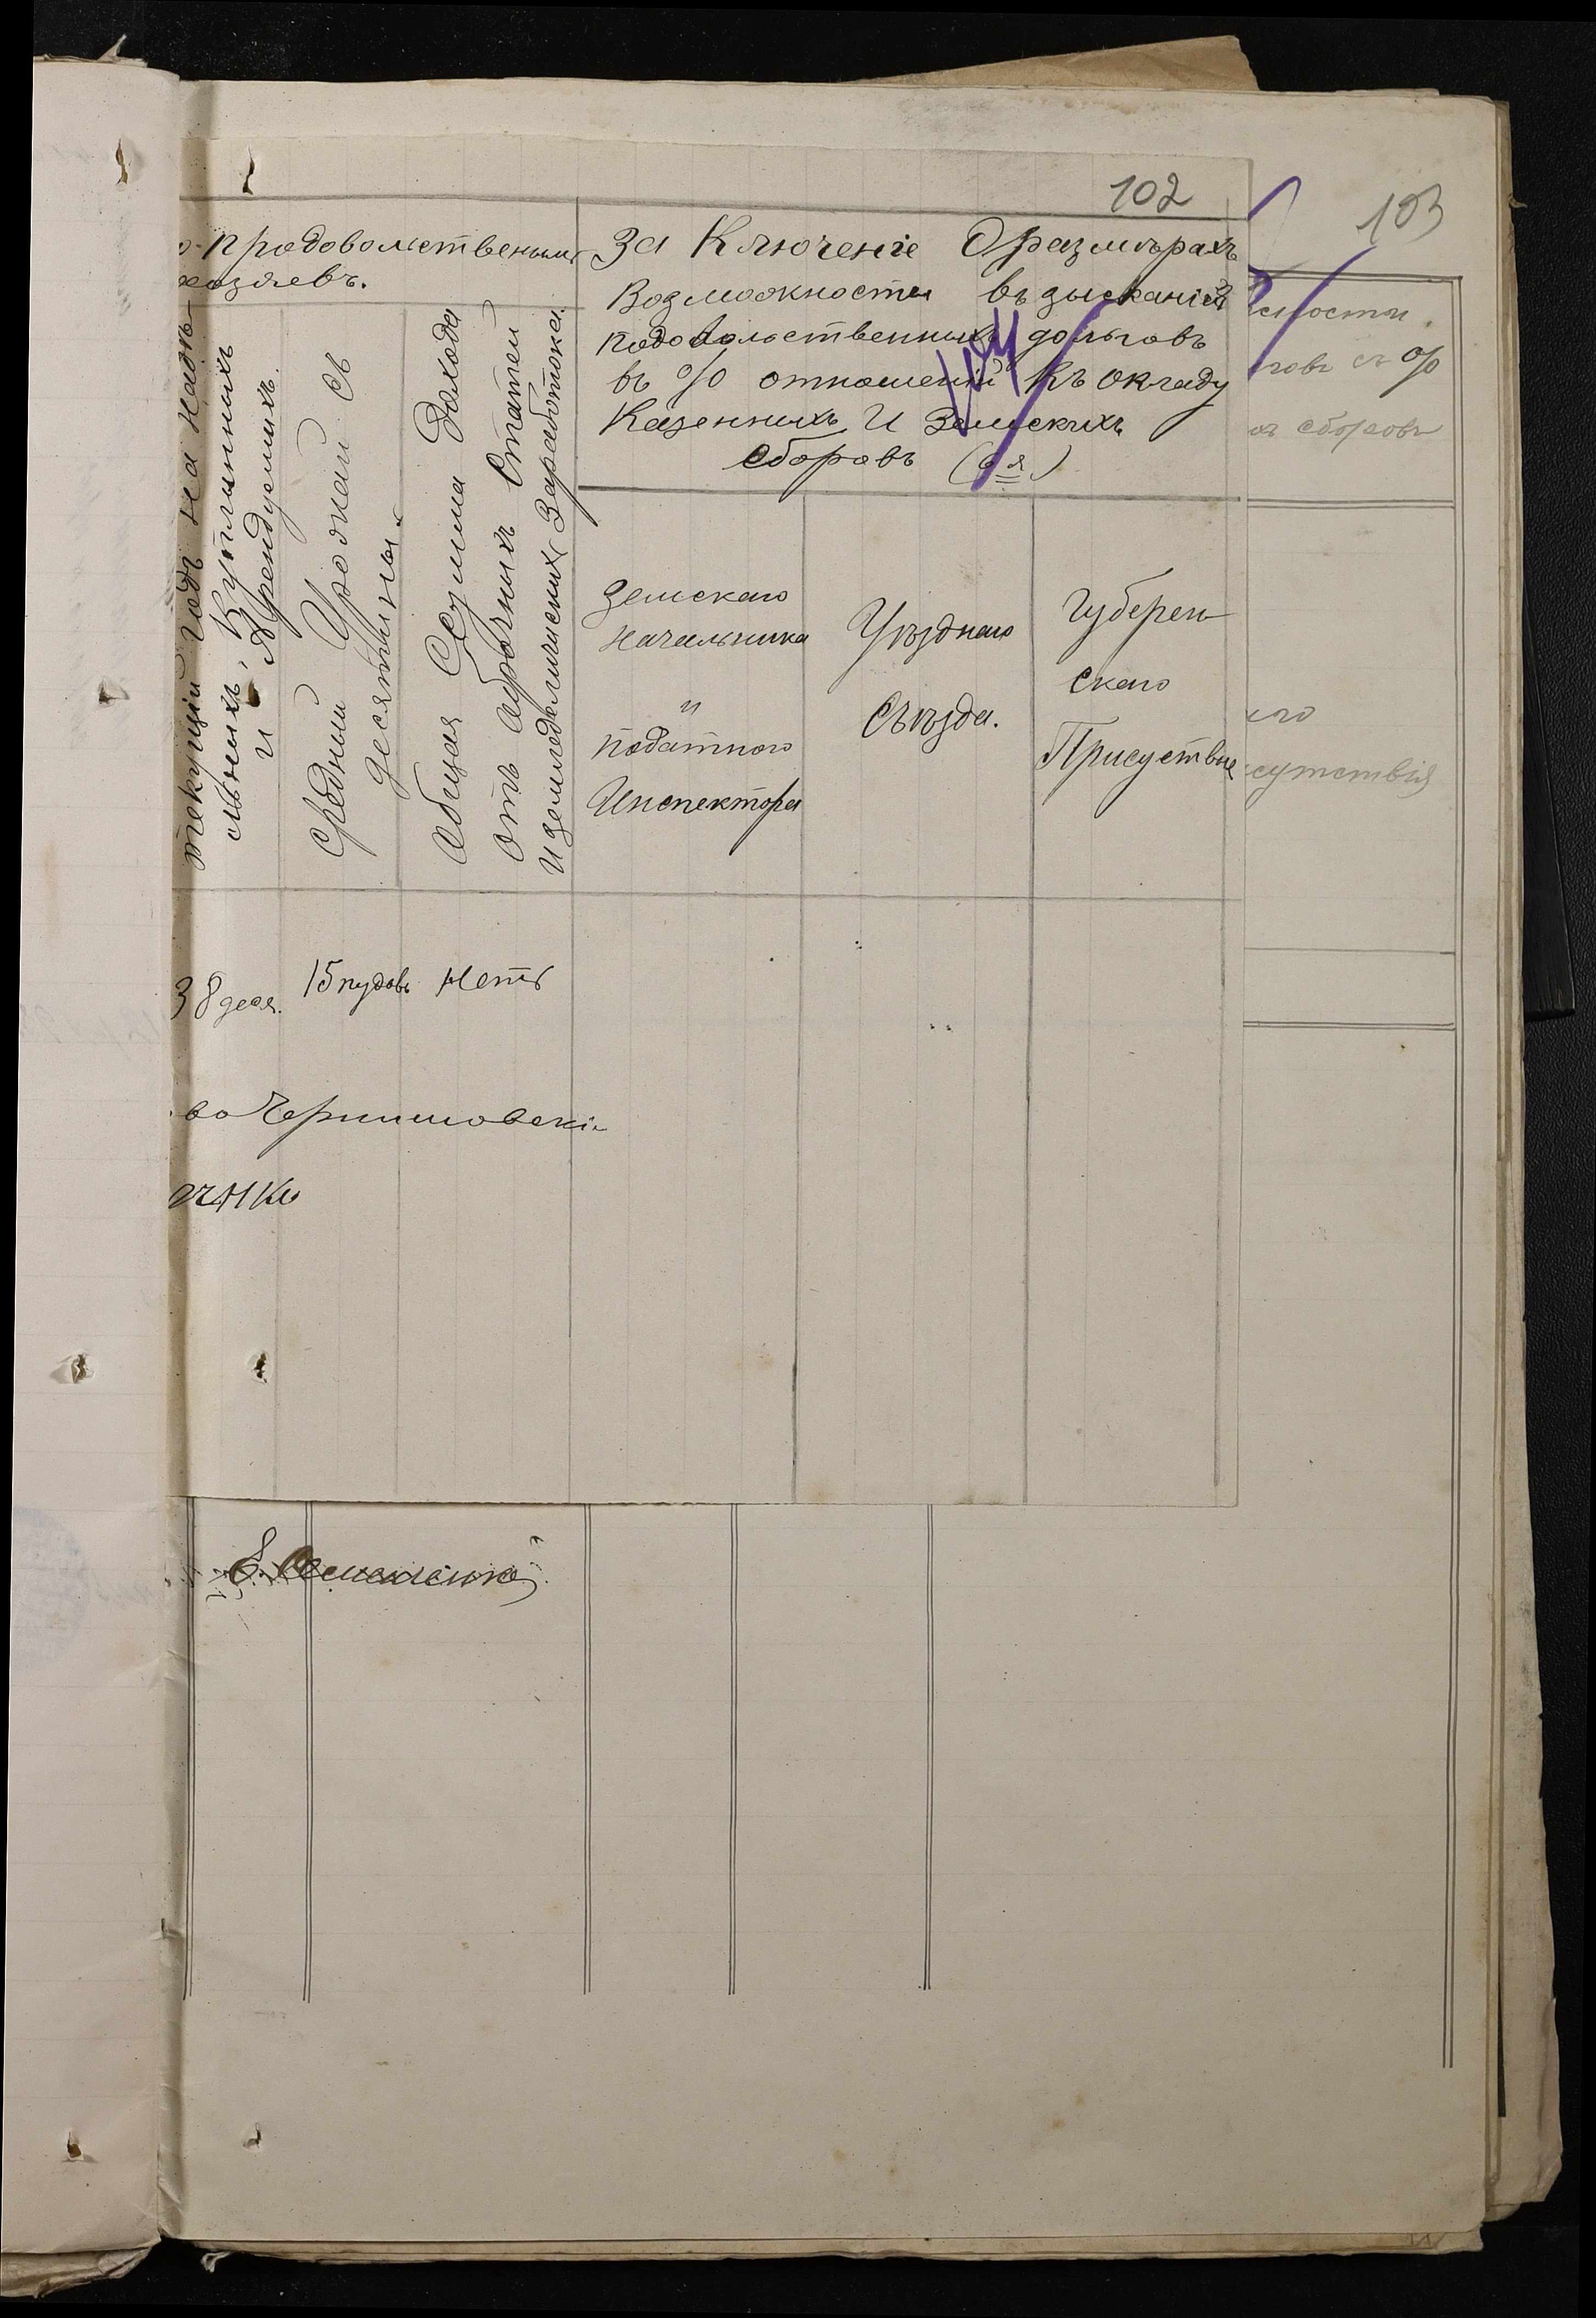 102
103
продоволственым
хозяевъ.
За Ключеніе О размѣрахъ
Возможносты въ зысканій
подовольственныхъ дольговъ
въ % отношеній Къ окладу
Казенныхъ И Земскихъ
сборовъ (6 я)
текущій годъ на надѣ
льныхъ, Куплинныхъ
и Арендуемихъ.
Средный Урожай съ
десятины.
Абщая Ссума Дохода
отъ аброчныхъ Статей
И земледѣлическихъ Заработока.
Земскаго
Начальника
и
податного
Инспектора
Уѣзднаго
Съѣзда.
Губерен
скаго
Присуствие
ности
говъ съ %
сборовъ
сутствія
38 деся.
15 пудовъ
Нетъ